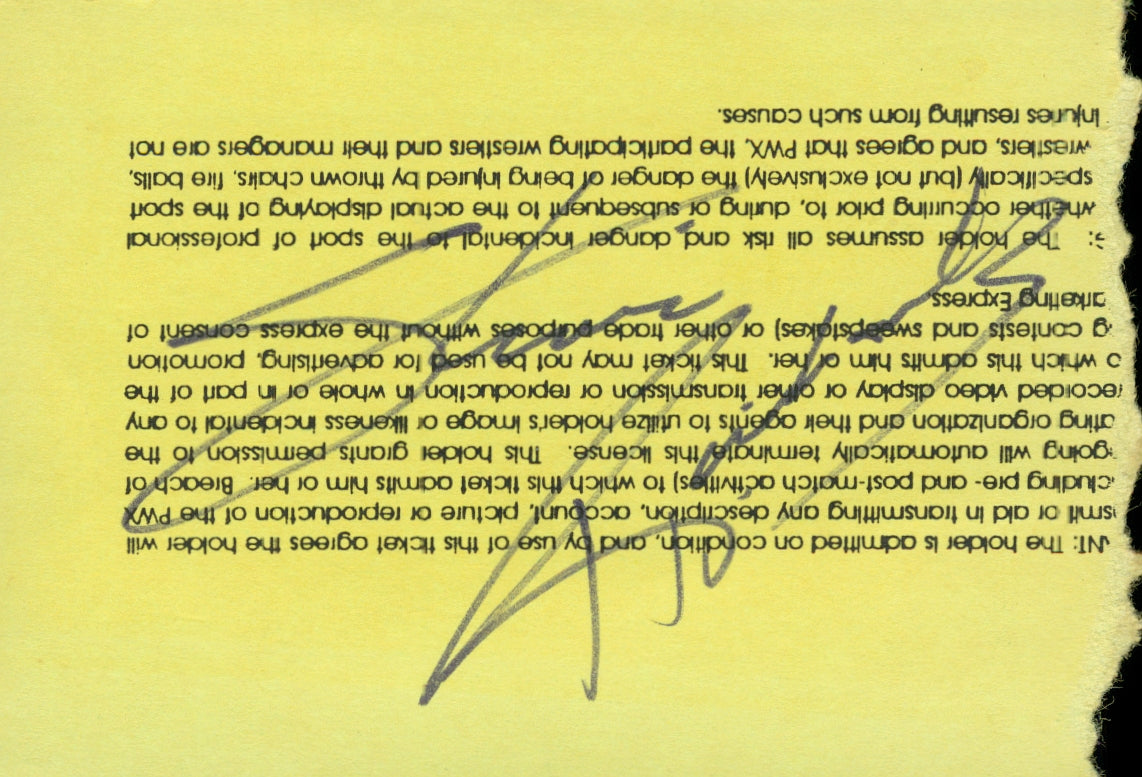 NT: The holder is admitted on condition, and by use of this ticket agrees the holder will
smit or aid in transmitting any description, account, picture or reproduction of the PWX
cluding pre- and post-match activities) to which this ticket admits him or her. Breach of
going will automatically terminate this license. This holder grants permission to the
ating organization and their agents to utilize holder's image or likeness incidental to any
recorded video display or other transmission or reproduction in whole or in part of the
o which this admits him or her. This ticket may not be used for advertising, promotion
g contests and sweepstakes) or other trade purposes without the express consent of
arketing Express.
G: The holder assumes all risk and danger incidental to the sport of professional
whether occurring prior to, during or subsequent to the actual displaying of the sport
specifically (but not exclusively) the danger of being injured by thrown chairs, fire balls,
wrestlers, and agrees that PWX, the participating wrestlers and their managers are not
injuries resulting from such causes.